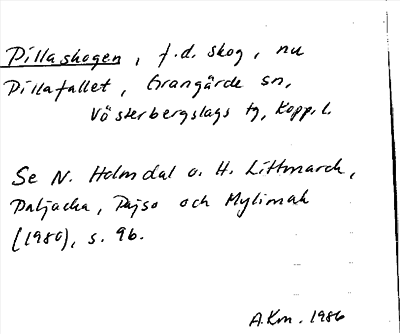 Pillaskogen, f.d. skog, nu
Pillafallet, Grangärde sn,
Västerbergslags tg, Kopp. l.
Se N. Holmdal o. H. Littmarck,
Paljacka, Pajso och Mylimak
(1980), s. 96.
A.Km. 1986